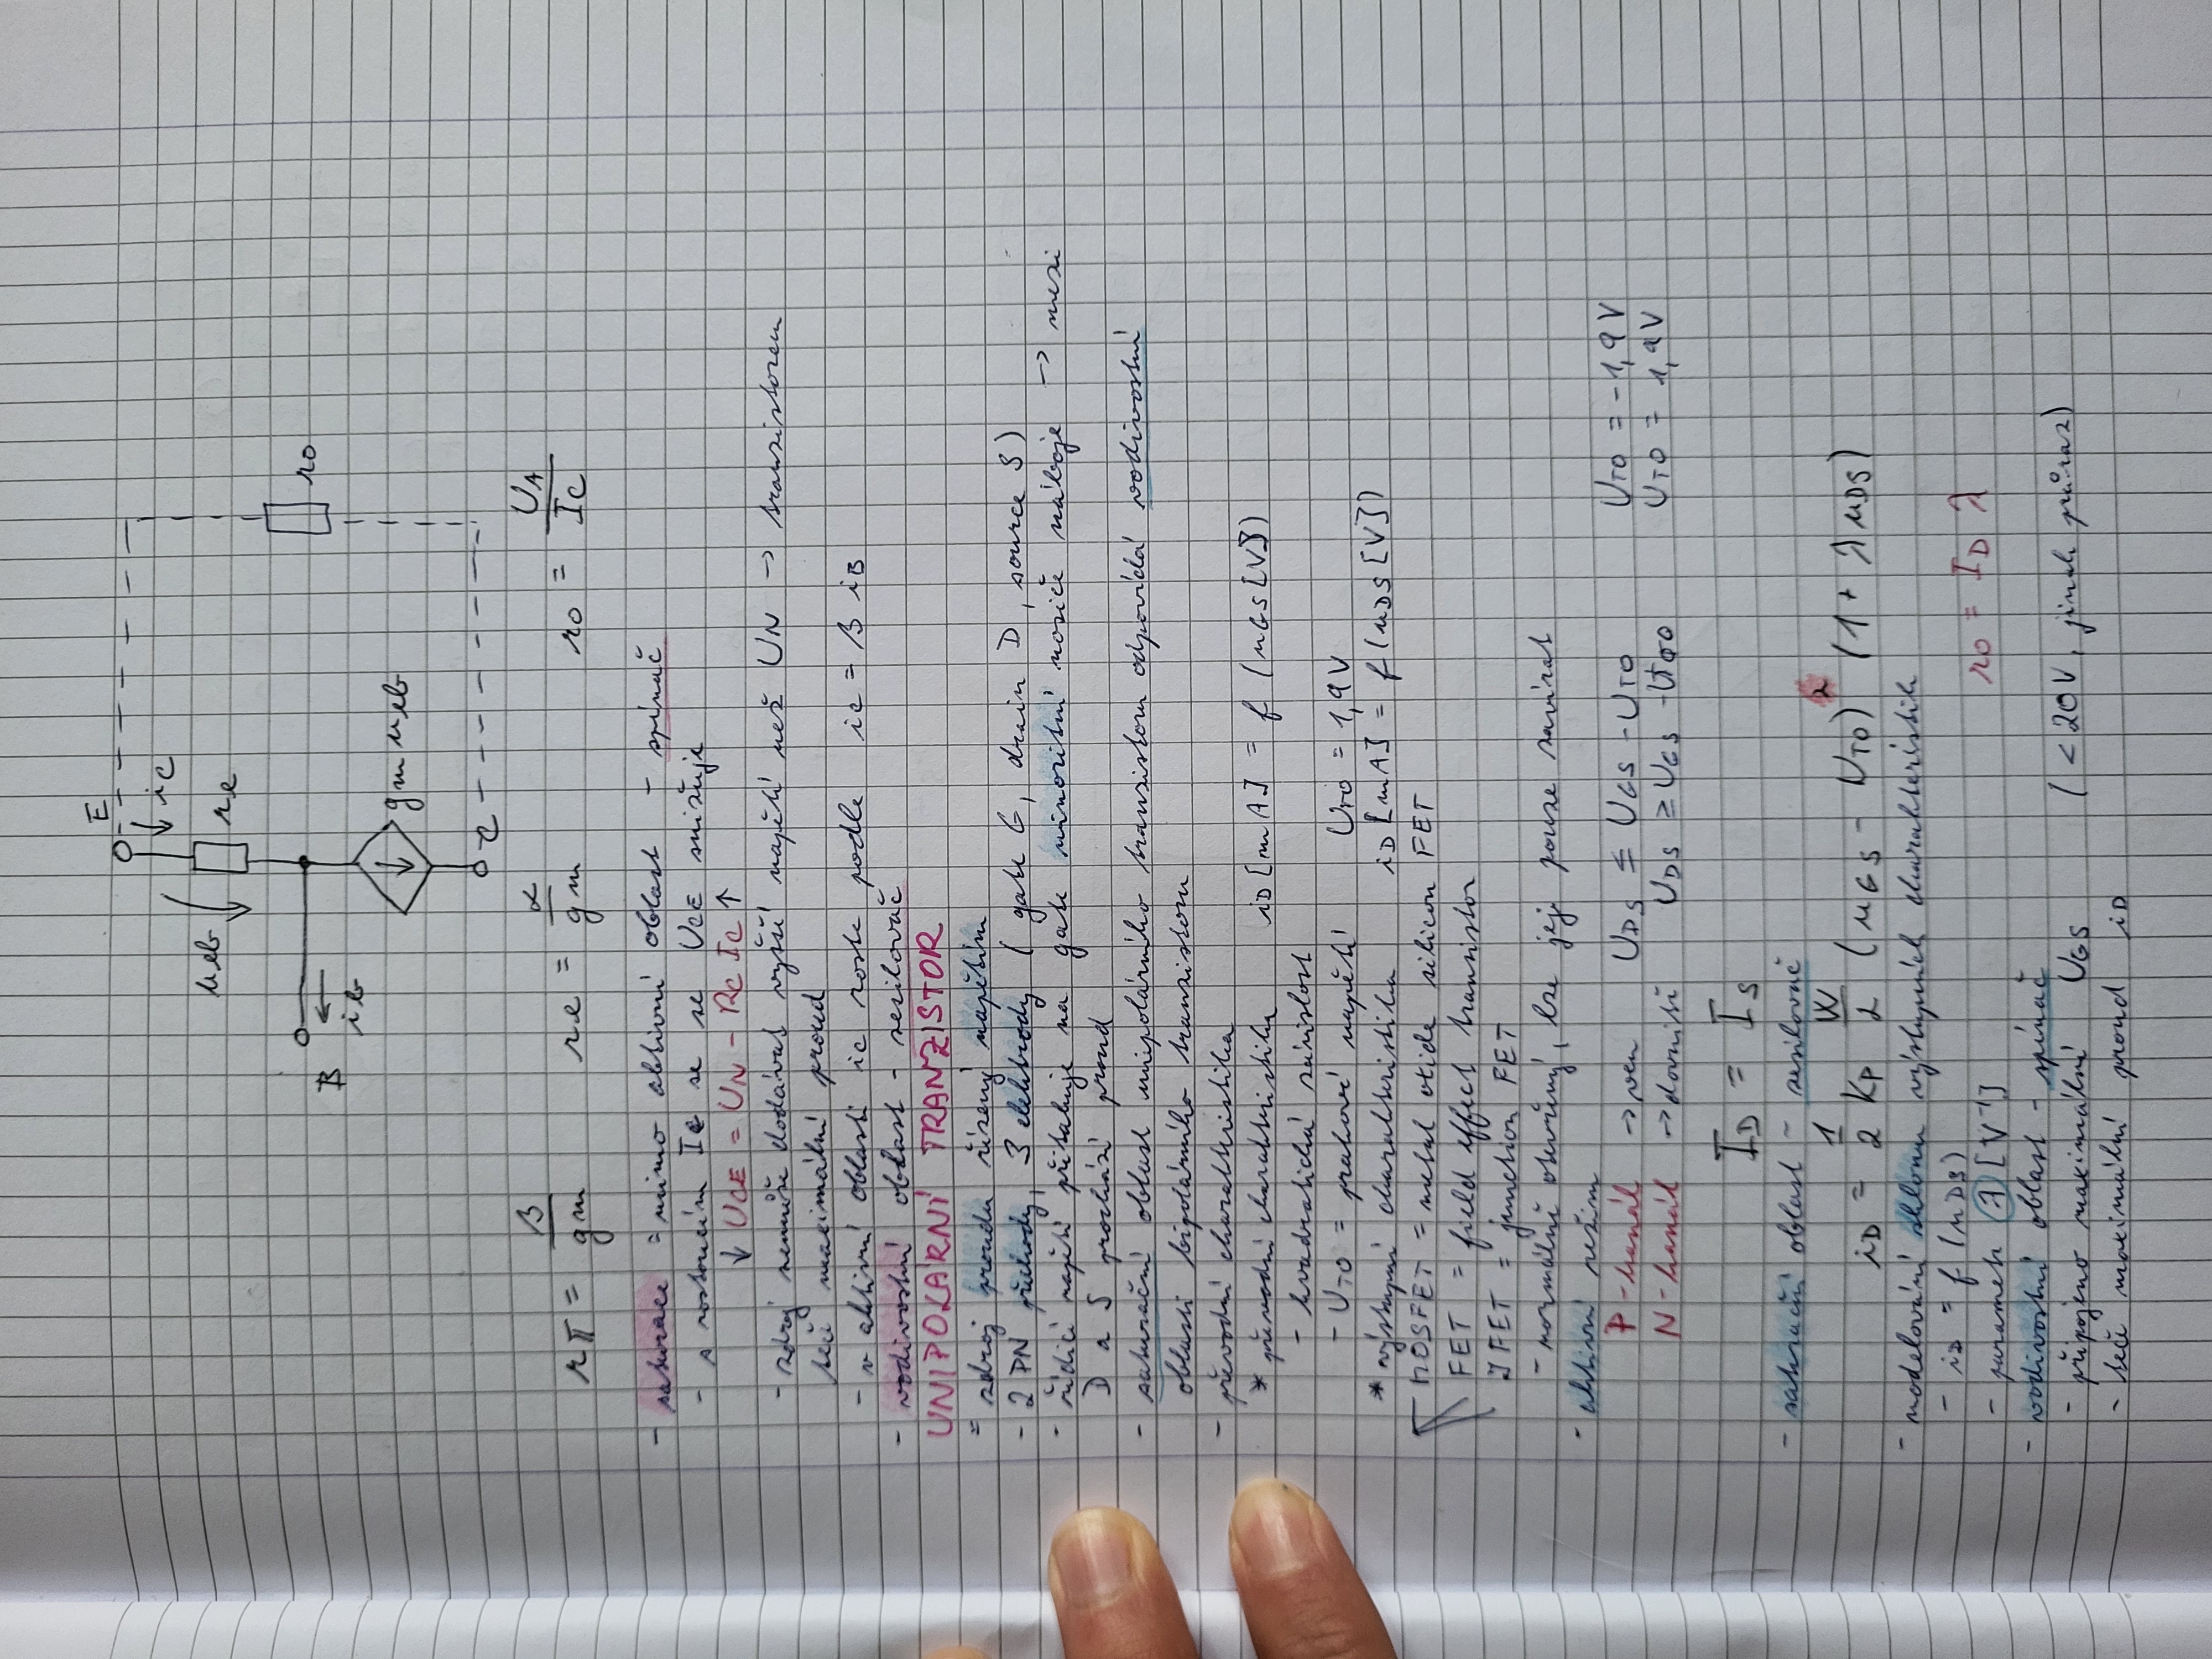 E
↓ ic
ueb
re
B
ro
ib
gm ueb
C
rπ = β/gm   re = α/gm   ro = UA/IC
- saturace = mimo aktivní oblast - spínač
- s rostoucím IC se se UCE snižuje
↓ UCE = UN - RC IC ↑
- zdroj nemůže dodávat vyšší napětí než UN → tranzistorem
teče maximální proud
- v aktivní oblasti ic roste podle ic = β iB
- vodivostní oblast - zesilovač
UNIPOLÁRNÍ TRANZISTOR
= zdroj proudu řízený napětím
- 2 PN přechody, 3 elektrody (gate G, drain D, source S)
- řídící napětí přitahuje na gate minoritní nosiče náboje → mezi
D a S prochází proud
- saturační oblast unipolárního tranzistoru odpovídá vodivostní
oblasti bipolárního tranzistoru
- převodní charakteristika
* převodní charakteristika   iD [mA] = f (uGS [V])
- kvadratická závislost
- UTO = prahové napětí   UTO = 1,9 V
* výstupní charakteristika   iD [mA] = f (uDS [V])
MOSFET = metal oxide silicon FET
FET = field effect transistor
JFET = junction FET
- normálně otevřený, lze jej pouze zavírat
- aktivní režim
P-kanál → ven   UDS ≤ UGS - UTO   UTO = -1,9 V
N-kanál → dovnitř   UDS ≥ UGS - UTO   UTO = 1,9 V
ID = IS
- saturační oblast - zesilovač
iD = 1/2 KP W/L (uGS - UTO)² (1 + λ uDS)
- modelování sklonu výstupních charakteristik
- iD = f (uDS)
ro = ID λ
- parametr λ [V⁻¹]
- vodivostní oblast - spínač
- připojeno maximální UGS   (< 20V, jinak průraz)
- teče maximální proud iD